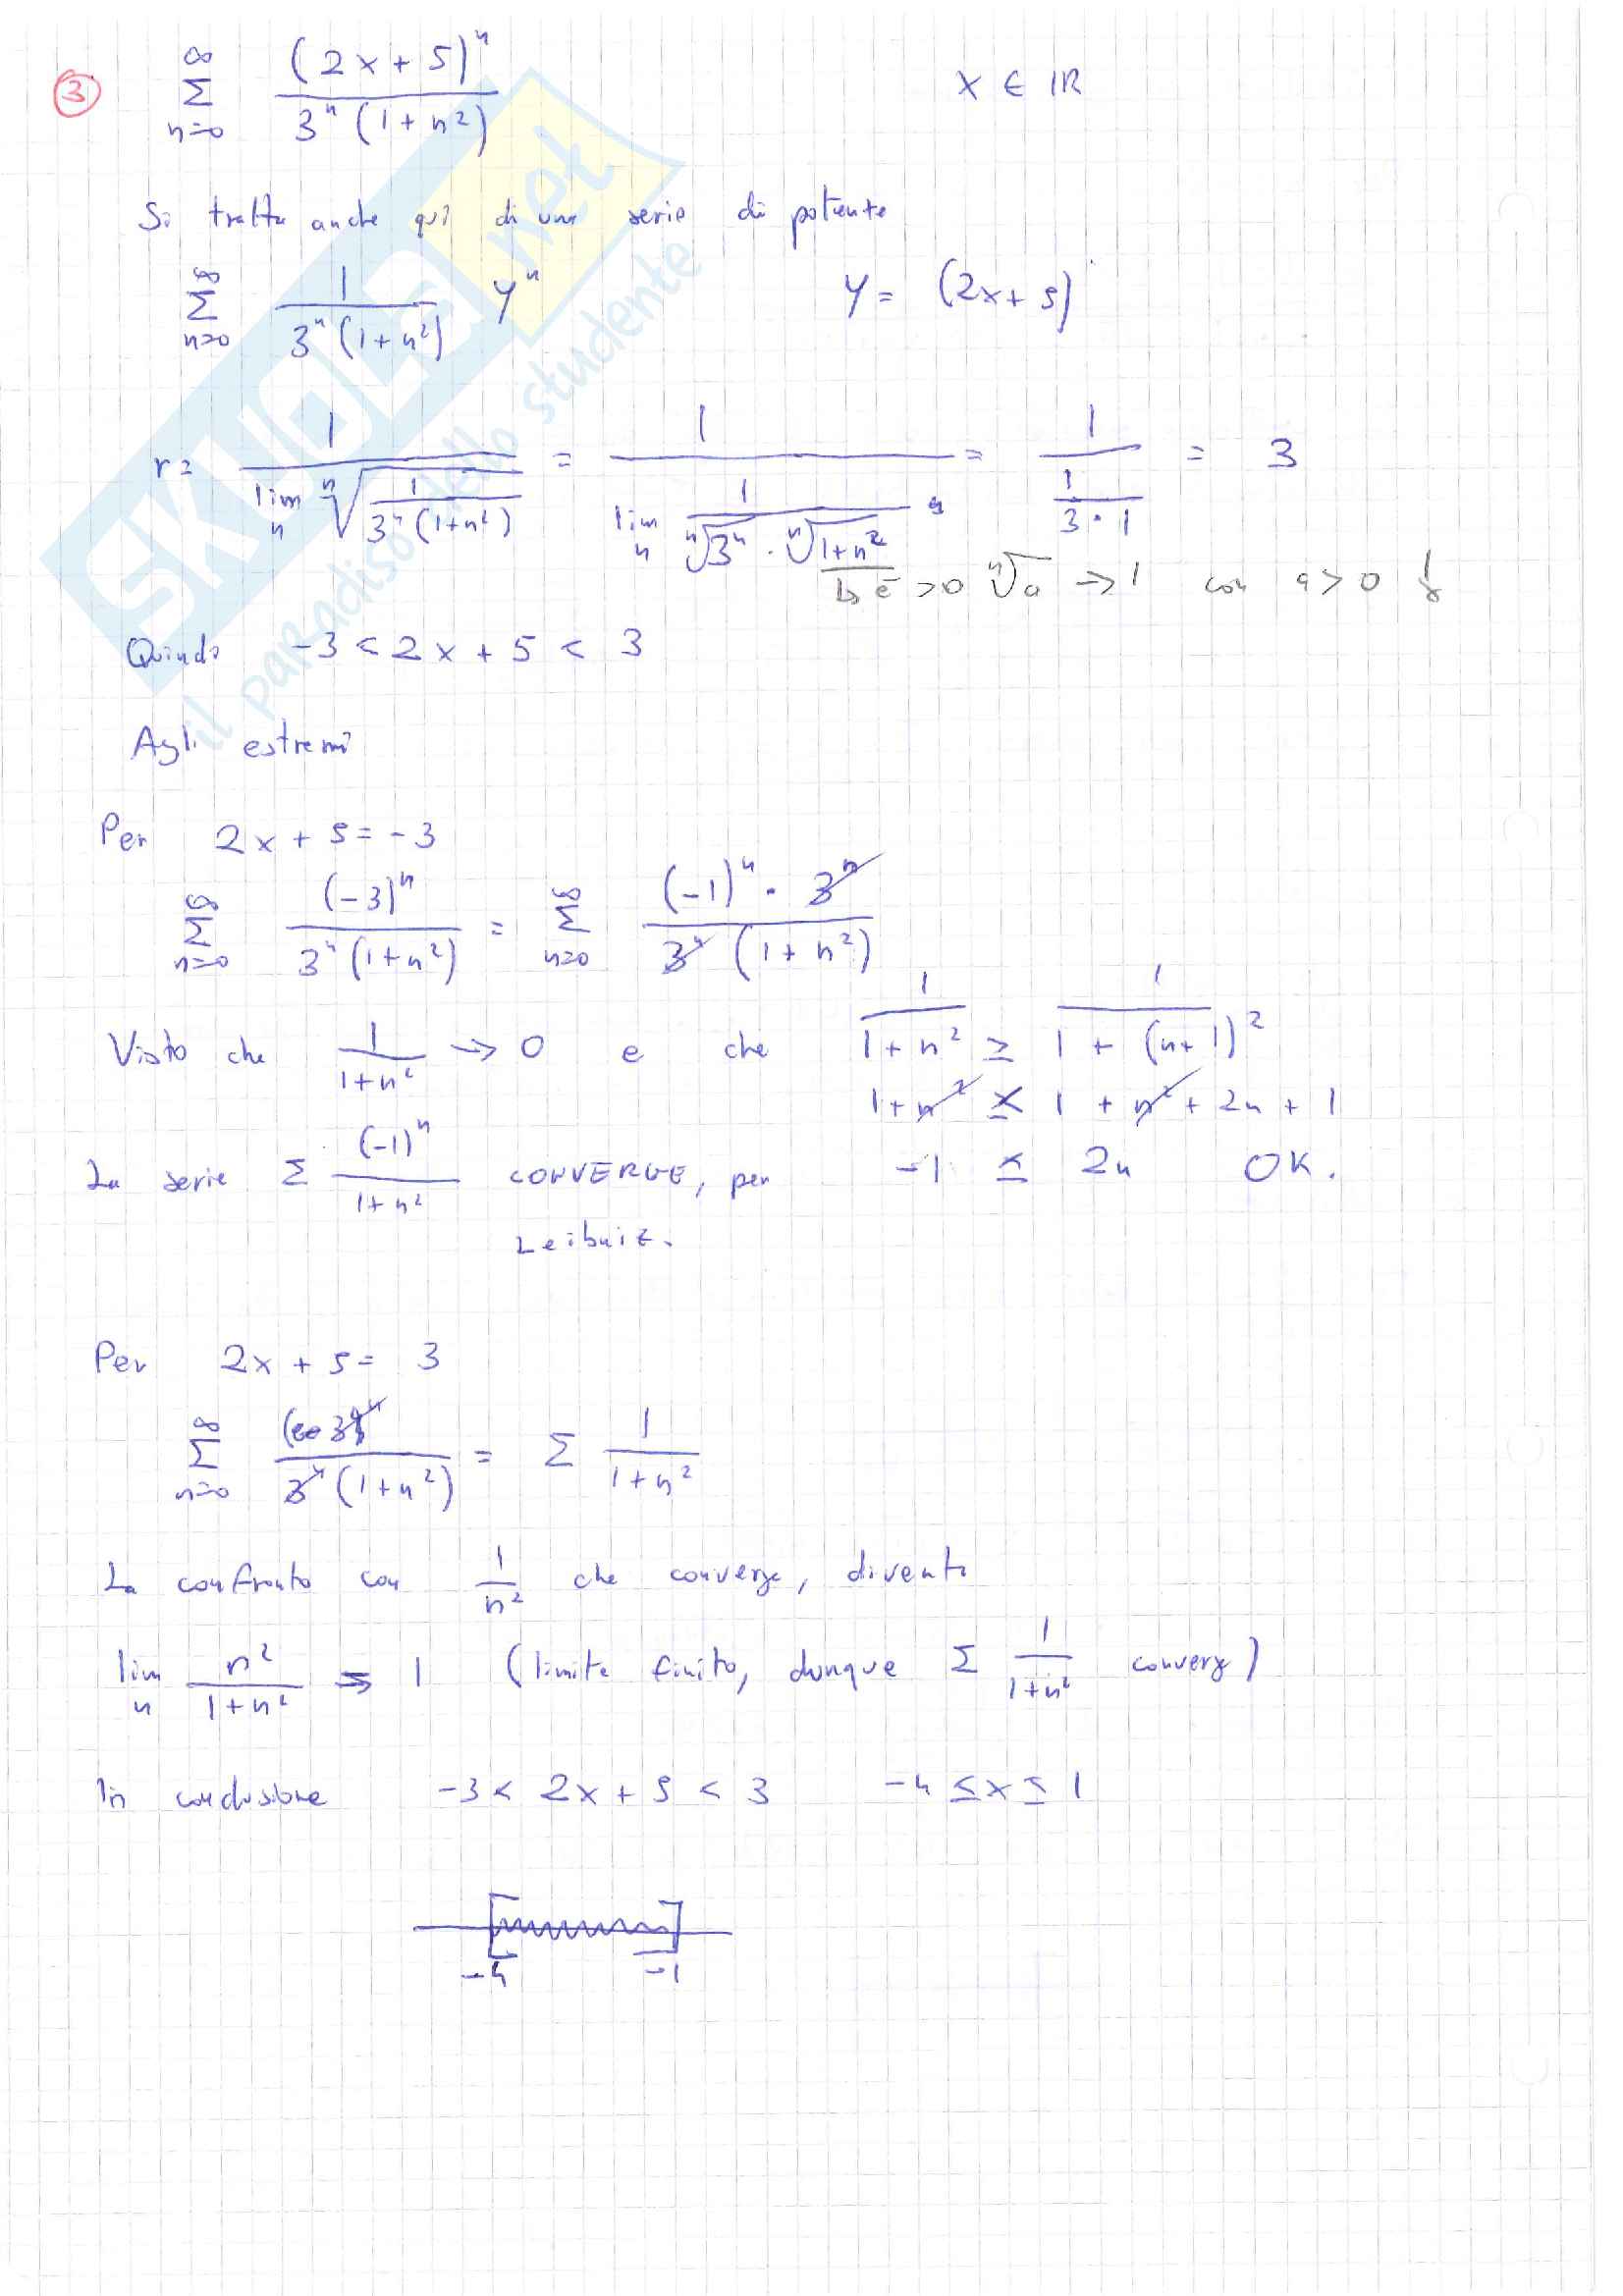 ③ ∑_{n=0}^{∞} (2x+5)^n / 3^n (1+n²)    x ∈ ℝ
Si tratta anche qui di una serie di potenze
∑_{n=0}^{∞} 1 / 3^n (1+n²) y^n    y = (2x+5)
r = 1 / lim_n ⁿ√(1 / 3^n (1+n²)) = 1 / lim_n 1 / (ⁿ√3^n · ⁿ√(1+n²)) = 1 / (1 / 3·1) = 3
↳ è >0 ⁿ√a → 1 con a > 0
Quindi -3 < 2x + 5 < 3
Agli estremi
Per 2x + 5 = -3
∑_{n=0}^{∞} (-3)^n / 3^n (1+n²) = ∑_{n=0}^{∞} (-1)^n · 3^n / 3^n (1+n²)
Visto che 1 / 1+n² → 0 e che 1 / 1+n² ≥ 1 / 1+(n+1)²
1+n² ≤ 1 + n² + 2n + 1
La serie ∑ (-1)^n / 1+n² CONVERGE, per
-1 ≤ 2n OK.
Leibniz.
Per 2x + 5 = 3
∑_{n=0}^{∞} 3^n / 3^n (1+n²) = ∑ 1 / 1+n²
La confronto con 1 / n² che converge, diventa
lim_n n² / 1+n² → 1 (limite finito, dunque ∑ 1 / 1+n² converge)
In conclusione -3 < 2x + 5 < 3    -4 ≤ x ≤ 1
-4    -1
SKUOLA.net
il paradiso dello studente